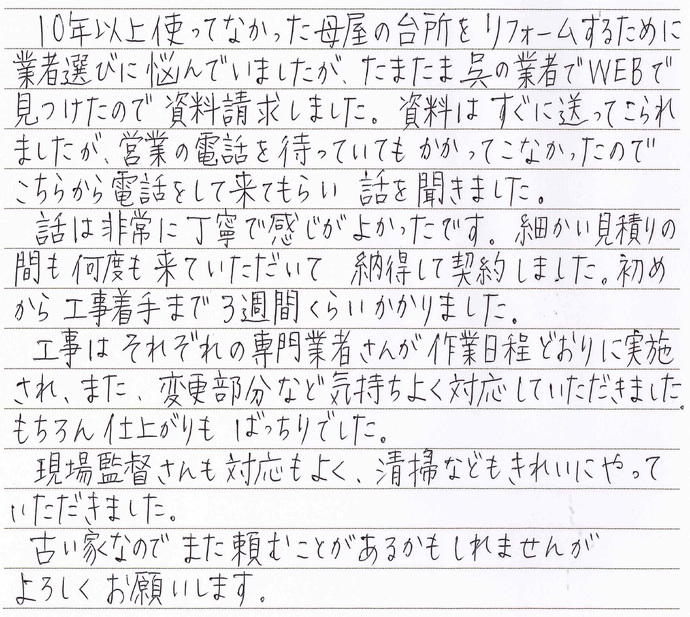 10年以上使ってなかった母屋の台所をリフォームするために
業者選びに悩んでいましたが、たまたま呉の業者でWEBで
見つけたので資料請求しました。資料はすぐに送ってこられ
ましたが、営業の電話を待っていてもかかってこなかったので
こちらから電話をして来てもらい 話を聞きました。
話は非常に丁寧で感じがよかったです。細かい見積りの
間も何度も来ていただいて 納得して契約しました。初め
から工事着手まで3週間くらいかかりました。
工事はそれぞれの専門業者さんが作業日程どおりに実施
され、また、変更部分など気持ちよく対応していただきました。
もちろん仕上がりもばっちりでした。
現場監督さんも対応もよく、清掃などもきれいにやって
いただきました。
古い家なのでまた頼むことがあるかもしれませんが
よろしくお願いします。